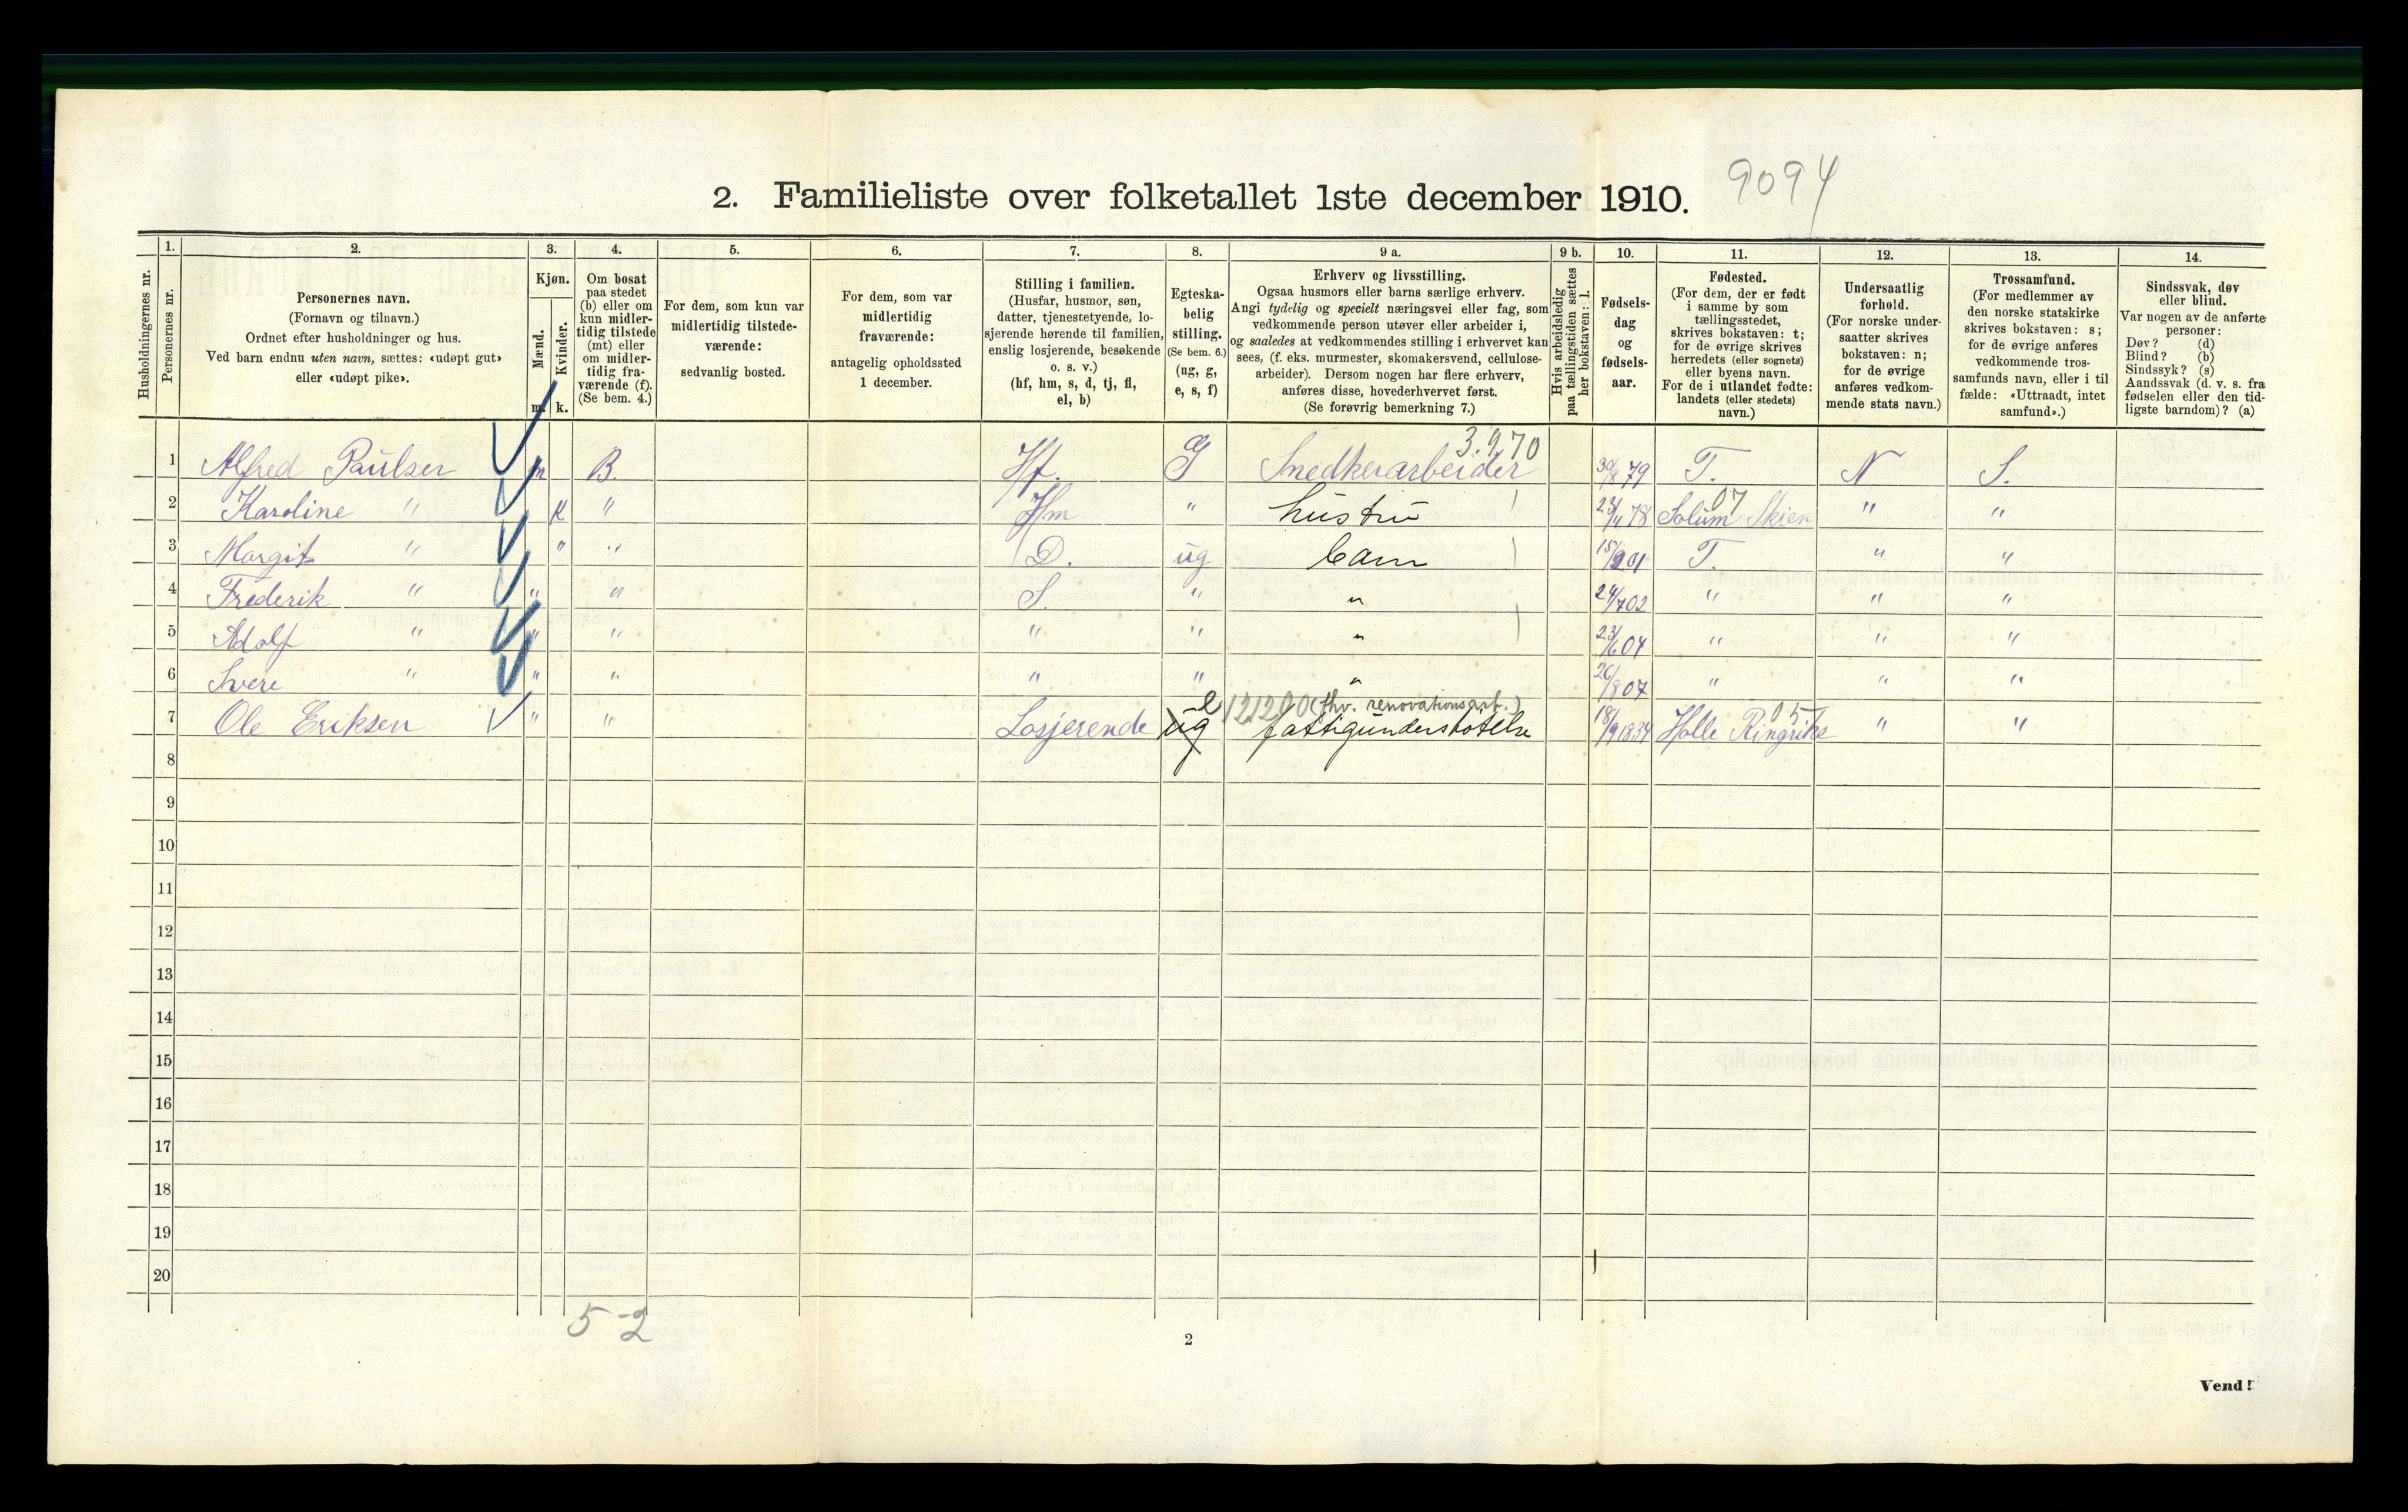 9094
2. Familieliste over folketallet 1ste december 1910.
Husholdningernes nr.
1.
Personernes nr.
2.
Personernes navn.
(Fornavn og tilnavn.)
Ordnet efter husholdninger og hus.
Ved barn endnu uten navn, sættes: «udøpt gut»
eller «udøpt pike».
3.
Kjøn.
Mænd.
Kvinder.
m.
k.
4.
Om bosat
paa stedet
(b) eller om
kun midler-
tidig tilstede
(mt) eller
om midler-
tidig fra-
værende (f).
(Se bem. 4.)
5.
For dem, som kun var
midlertidig tilstede-
værende:
sedvanlig bosted.
6.
For dem, som var
midlertidig
fraværende:
antagelig opholdssted
1 december.
7.
Stilling i familien.
(Husfar, husmor, søn,
datter, tjenestetyende, lo-
sjerende hørende til familien,
enslig losjerende, besøkende
o. s. v.)
(hf, hm, s, d, tj, fl,
el, b)
8.
Egteska-
belig
stilling.
(Se bem. 6.)
(ug, g,
e, s, f)
9 a.
Erhverv og livsstilling.
Ogsaa husmors eller barns særlige erhverv.
Angi tydelig og specielt næringsvei eller fag, som
vedkommende person utøver eller arbeider i,
og saaledes at vedkommendes stilling i erhvervet kan
sees, (f. eks. murmester, skomakersvend, cellulose-
arbeider). Dersom nogen har flere erhverv,
anføres disse, hovederhvervet først.
(Se forøvrig bemerkning 7.)
9 b.
Hvis arbeidsledig
paa tællingstiden sættes
her bokstaven: l.
10.
Fødsels-
dag
og
fødsels-
aar.
11.
Fødested.
(For dem, der er født
i samme by som
tællingsstedet,
skrives bokstaven: t;
for de øvrige skrives
herredets (eller sognets)
eller byens navn.
For de i utlandet fødte:
landets (eller stedets)
navn.)
12.
Undersaatlig
forhold.
(For norske under-
saatter skrives
bokstaven: n;
for de øvrige
anføres vedkom-
mende stats navn.)
13.
Trossamfund.
(For medlemmer av
den norske statskirke
skrives bokstaven: s;
for de øvrige anføres
vedkommende tros-
samfunds navn, eller i til-
fælde: «Uttraadt, intet
samfund».)
14.
Sindssvak, døv
eller blind.
Var nogen av de anførte
personer:
Døv? (d)
Blind? (b)
Sindssyk? (s)
Aandssvak (d. v. s. fra
fødselen eller den tid-
ligste barndom)? (a)
3.9.70
1 Alfred Paulsen m B. Hf. G Snedkerarbeider 30/8 79 T. N S.
07
2 Karoline " K " Hm " hustru 23/4 78 Solum Skien " "
3 Margit " " " D. ug barn 15/2 01 T. " "
4 Frederik " " " S. " " 24/7 02 " " "
5 Adolf " " " " " " 23/6 04 " " "
6 Svere " " " " " " 26/8 07 " " "
e 121200 (fhv. renovationsarb.) 05
7 Ole Eriksen " " Losjerende ug fattigunderstøtelse 18/9 1834 Holle Ringrike " "
8
9
10
11
12
13
14
15
16
17
18
19
20
5-2
2
Vend!